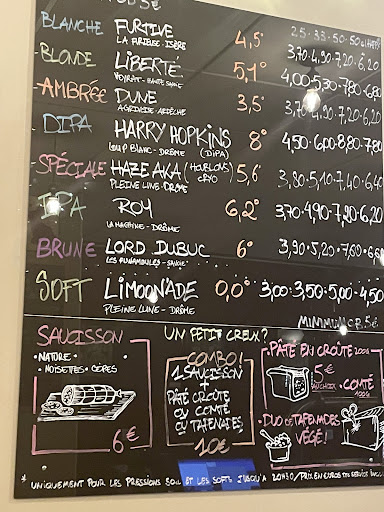 BLANCHE FURTIVE 4,5°
LA FURIEUSE - ISÈRE 3,70-4,90-7,20-6,20
BLONDE LIBERTÉ 5,1° 4,00-5,30-7,80-6,80
AMBRÉE DUNE 3,5° 3,70-4,90-7,20-6,20
AGRIVOISE - ARDÈCHE
DIPA HARRY HOPKINS 8° 4,50-6,00-8,80-7,80
LOUP BLANC - DRÔME (DIPA)
SPÉCIALE HAZE AKA (HOUBLONS CRYO) 5,6° 3,80-5,10-7,40-6,40
PLEINE LUNE - DROME
IPA ROY 6,2° 3,70-4,90-7,20-6,20
LA MACHINE - DRÔME
BRUNE LORD DUBUC 6° 3,90-5,20-7,60-6,60
LES FUNAMBULES - SAVOIE
SOFT LIMOONADE 0,0° 3,00-3,50-5,00-4,50
PLEINE LUNE - DRÔME
MINIMUM CB.5€
SAUCISSON
• NATURE •
• NOISETTES • CÈPES
6€
UN PETIT CREUX?
COMBO!
1 SAUCISSON
+
PÂTÉ CROÛTE
OU COMTÉ
OU TAPENADES
10€
• PÂTÉ EN CROÛTE 100G
5€
AU CHOIX • COMTÉ
100G
• DUO DE TAPENADES
VÉGÉ!
* UNIQUEMENT POUR LES PRESSIONS 50CL ET LES SOFTS JUSQU'À 20H30/PRIX EN EUROS TTC SERVICE